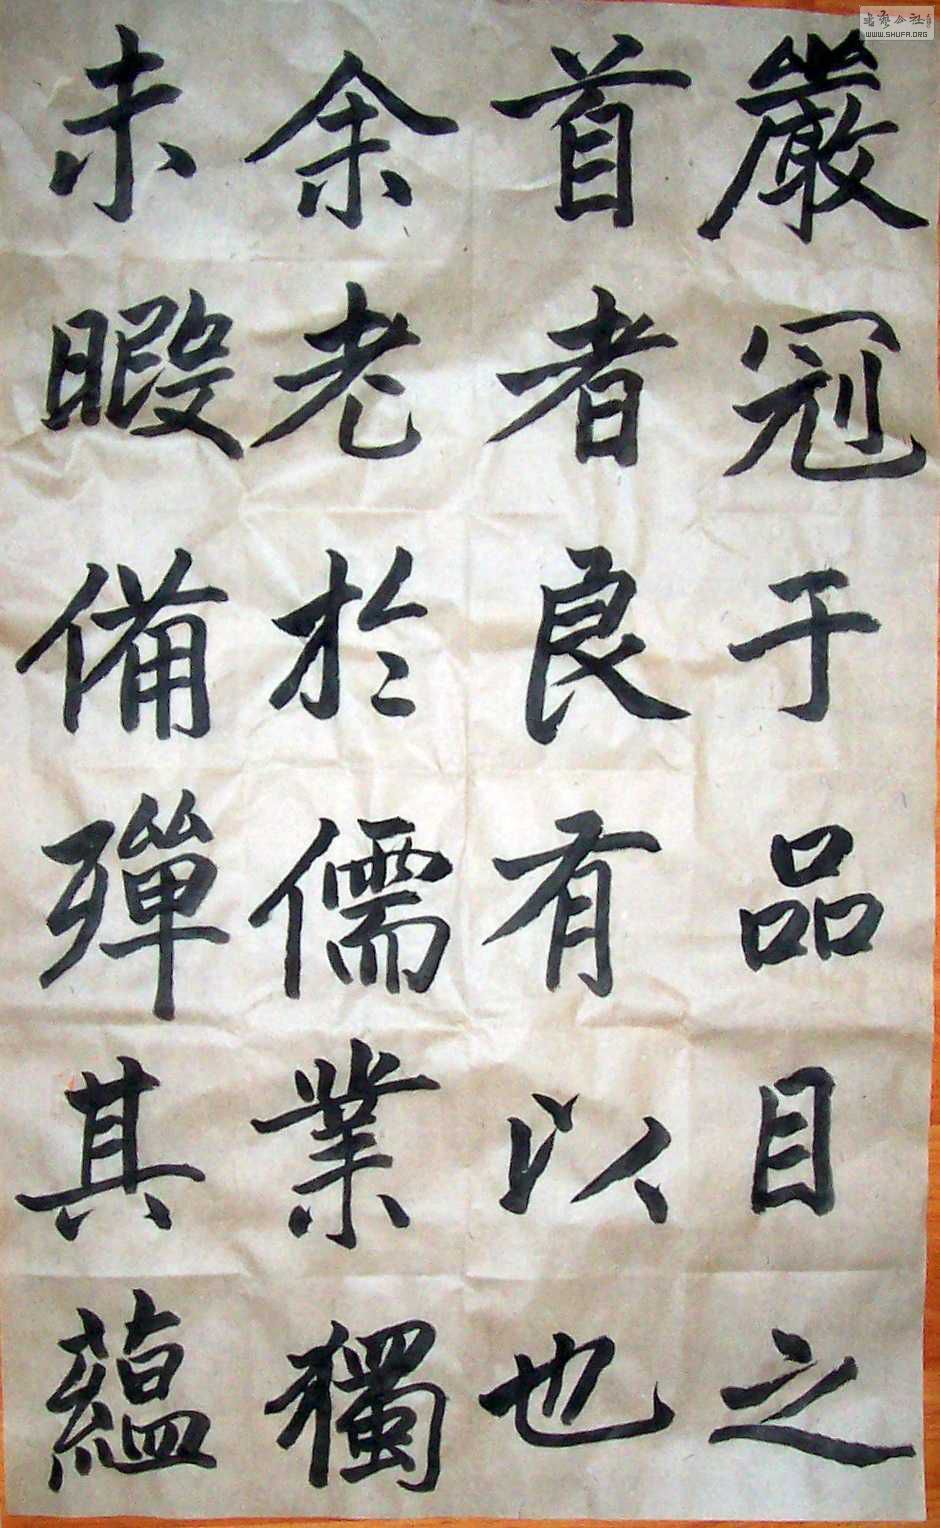 嚴冠于品目之
首者良有以也
余老於儒業獨
未暇備彈其蘊
WWW.SHUFA.ORG